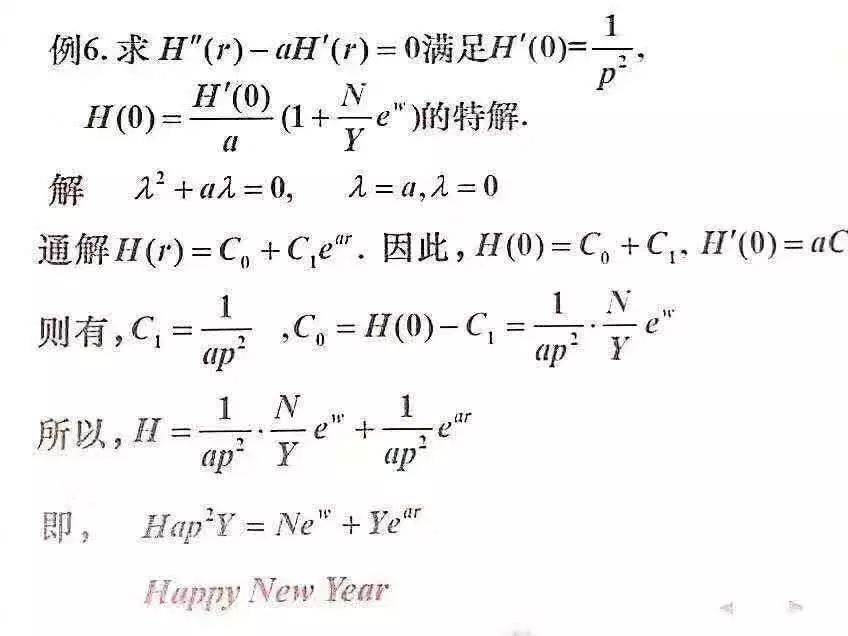 例6. 求 H″(r) − aH′(r) = 0满足H′(0)= 1/p²,
H(0) = H′(0)/a (1 + N/Y eʷ)的特解.
解 λ² + aλ = 0, λ = a, λ = 0
通解H(r) = C₀ + C₁eᵃʳ. 因此, H(0) = C₀ + C₁, H′(0) = aC
则有, C₁ = 1/ap² ,C₀ = H(0) − C₁ = 1/ap² · N/Y eʷ
所以, H = 1/ap² · N/Y eʷ + 1/ap² eᵃʳ
即, Hap²Y = Neʷ + Yeᵃʳ
Happy New Year